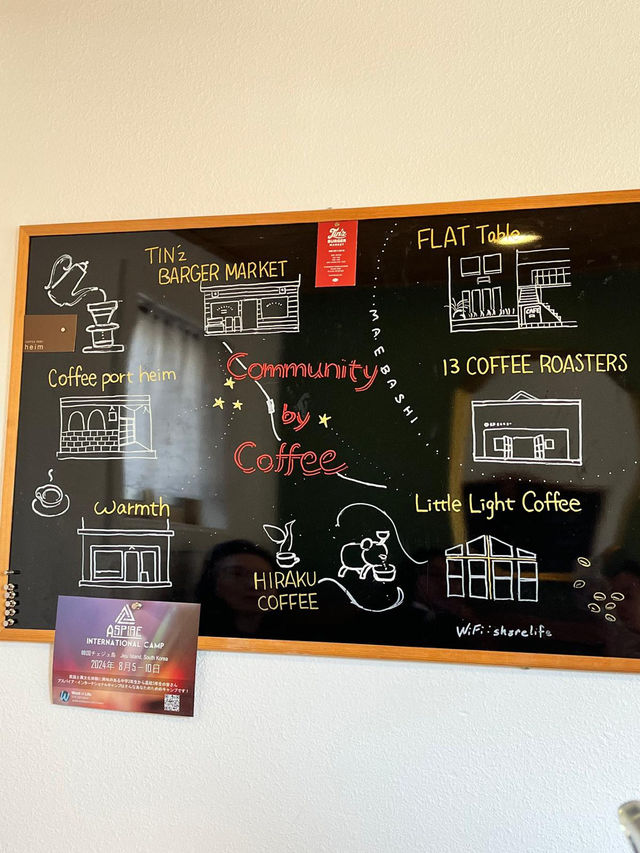 TIN'z
BARGER MARKET
Tin'z
BURGER
MARKET
FLAT Table
CAFE
heim
Coffee port heim
MAEBASHI
13 COFFEE ROASTERS
Community
by
Coffee
warmth
Little Light Coffee
HIRAKU
COFFEE
WiFi : sharelife
ASPIRE
INTERNATIONAL CAMP
韓国チェジュ島 Jeju Island, South Korea
2024年 8月5-10日
Word of Life